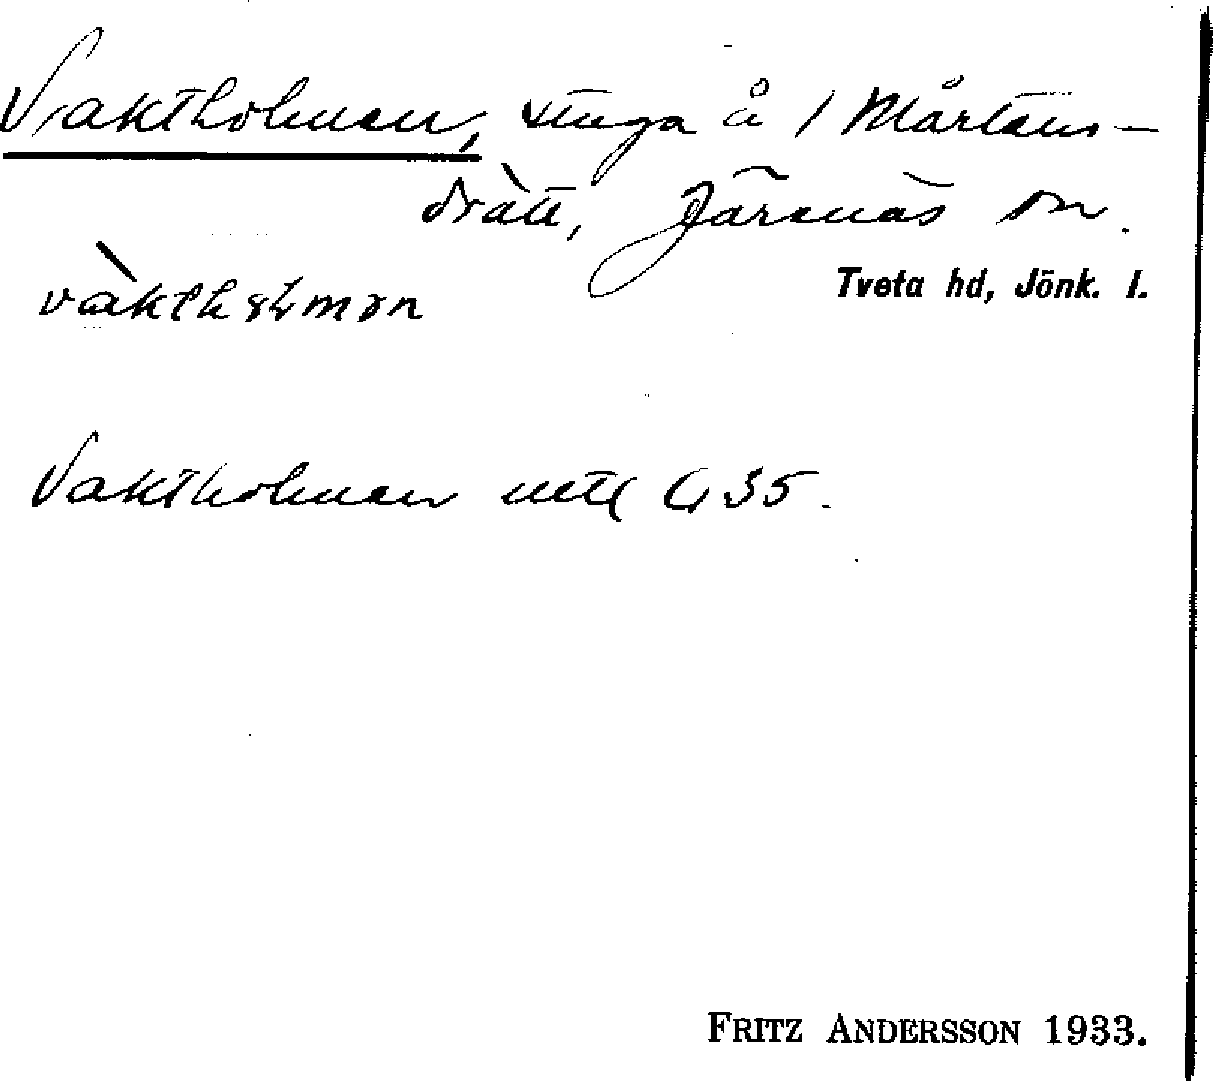 Vaktholmen, stuga å 1 Mårtens-
drätt, Järsnäs sn.
Tveta hd, Jönk. l.
vàkthȯlmən
Vaktholmen mtl G 35.
FRITZ ANDERSSON 1933.